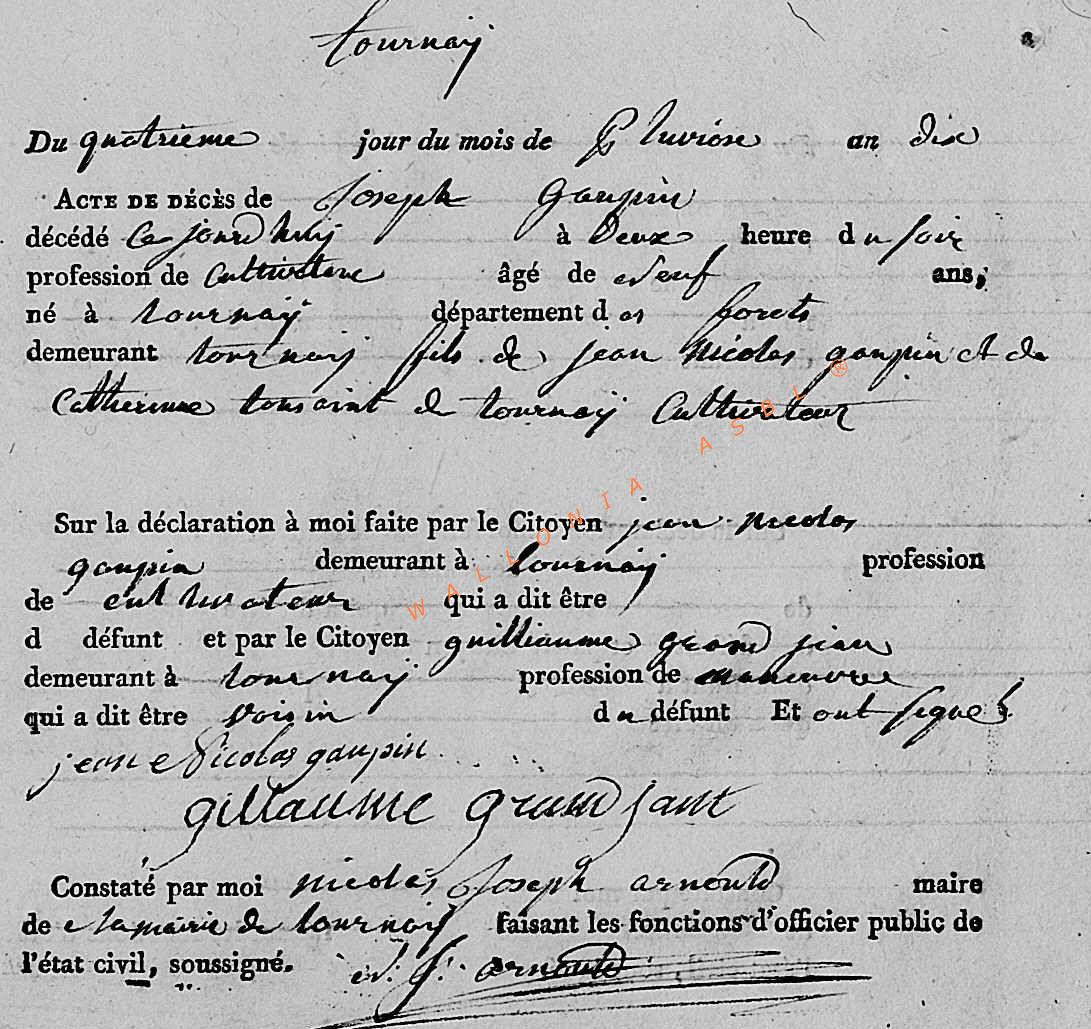 tournaÿ
Du quatrieme jour du mois de Pluviose an dix
ACTE DE DÉCÈS de Joseph Gaupin
décédé Ce jourdhuÿ à Deux heure du soir
profession de Cultivateur âgé de Neuf ans,
né à tournaÿ département des forets
demeurant tournaÿ fils de jean Nicolas gaupin et de
Catherinne tousaint de tournaÿ Cultivateur
Sur la déclaration à moi faite par le Citoyen jean nicolas
gaupin demeurant à tournaÿ profession
de cultivateur qui a dit être
d défunt et par le Citoyen guilliaume grand jean
demeurant à tournaÿ profession de maneuvre
qui a dit être voisin du défunt Et ont signes
jean Nicolas gaupin
gillaume grandjant
Constaté par moi nicolas Joseph arnould maire
de la mairie de tournaÿ faisant les fonctions d'officier public de
l'état civil, soussigné. N. J. arnould
WALLONIA ASBL ®